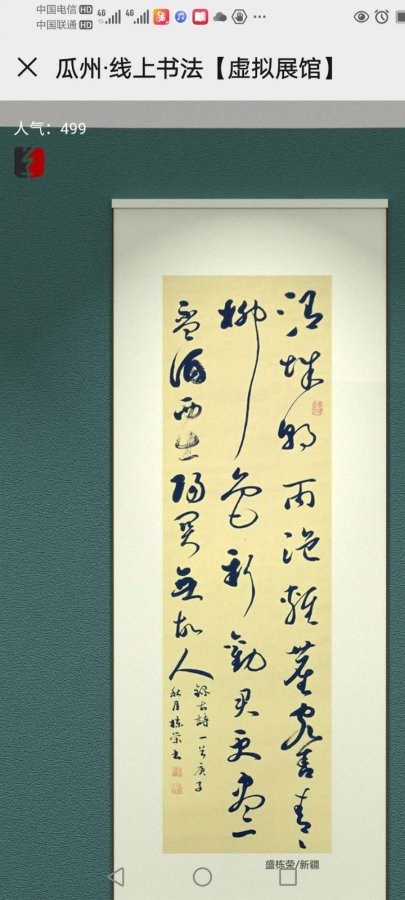 中国电信 HD 4G 4G
中国联通 HD
瓜州·线上书法【虚拟展馆】
人气：499
渭城朝雨浥輕塵客舍青々
柳色新勸君更盡一
盃酒西出陽關無故人
錄古詩一首庚子
秋月棟榮书
盛栋荣/新疆